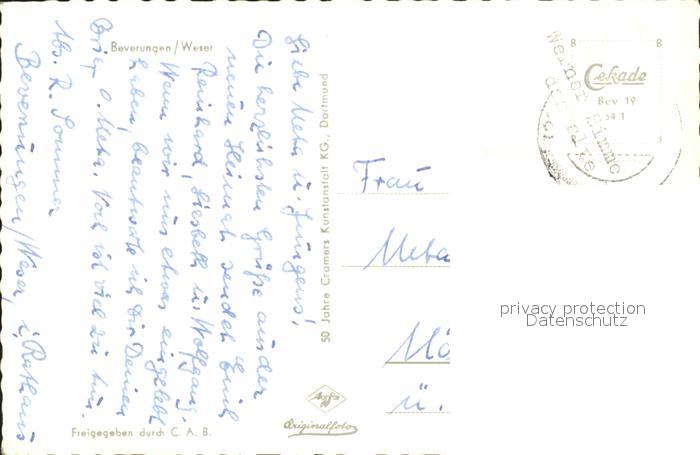 Beverungen/Weser
Liebe Meta u. Jungens!
Die herzlichsten Grüße aus der
neuen Heimat senden Euch
Reinhard, Liesbeth u. Wolfgang.
Wenn wir uns etwas eingelebt
haben, beantworte ich Dir Deinen
Brief l. Meta. Noch ist viel zu tun.
Abs. R. Sommer
Beverungen/Weser, i. Rathaus
Freigegeben durch C. A. B.
50 Jahre Cramers Kunstanstalt KG., Dortmund
Agfa
Originalfoto
Frau
Meta
Mö
ü.
8 8
Cekade
Bev 19
54 1
8
Werner Simme
privacy protection
Datenschutz